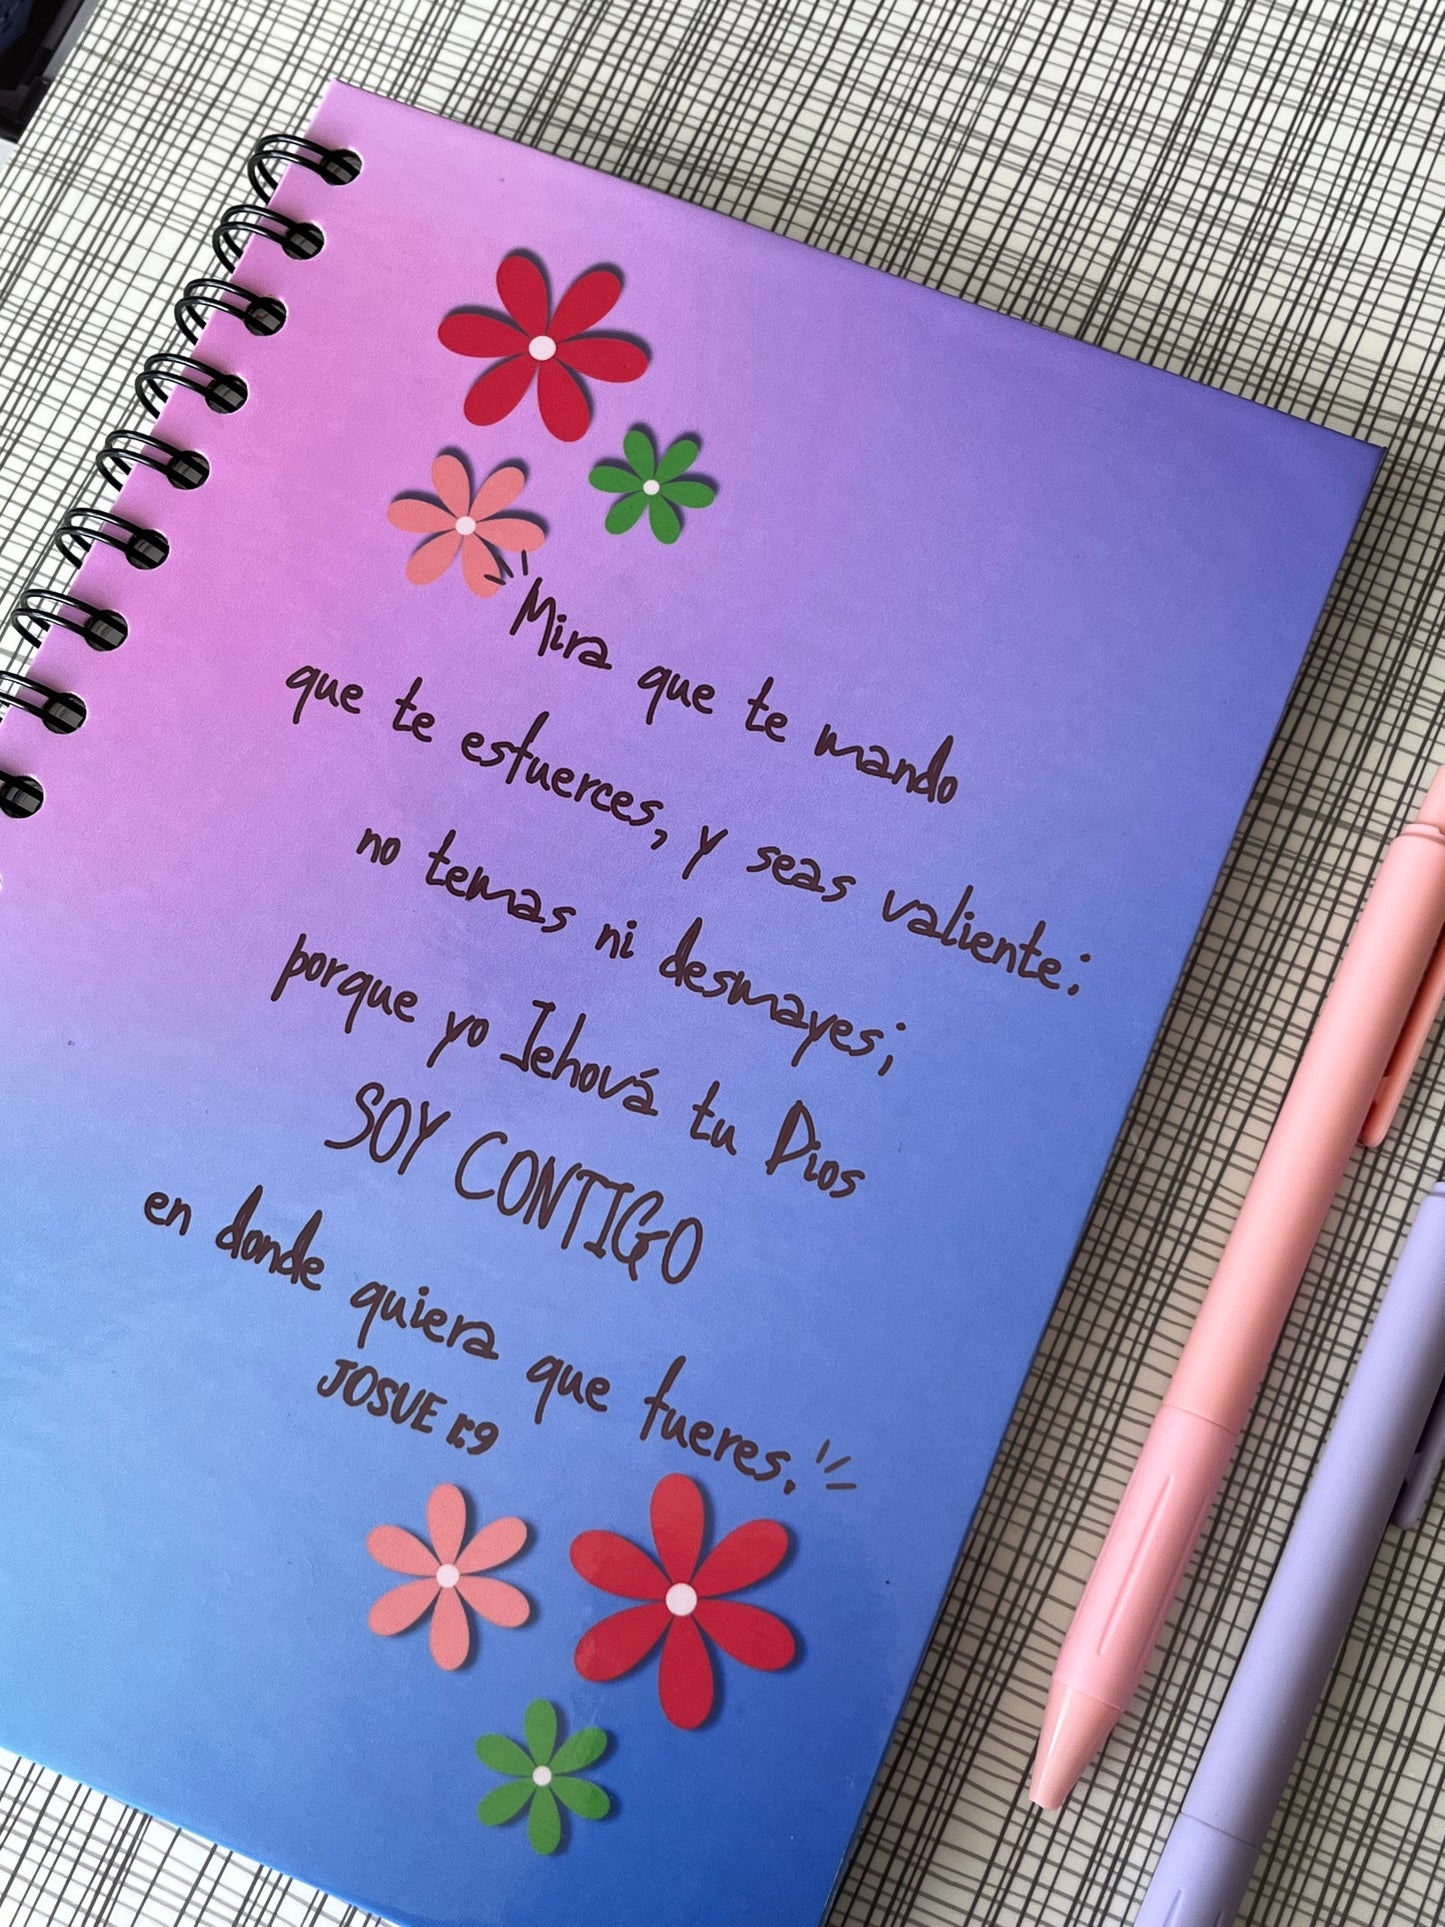 "Mira que te mando
que te esfuerces, y seas valiente:
no temas ni desmayes;
porque yo Jehová tu Dios
SOY CONTIGO
en donde quiera que fueres."
JOSUE 1:9